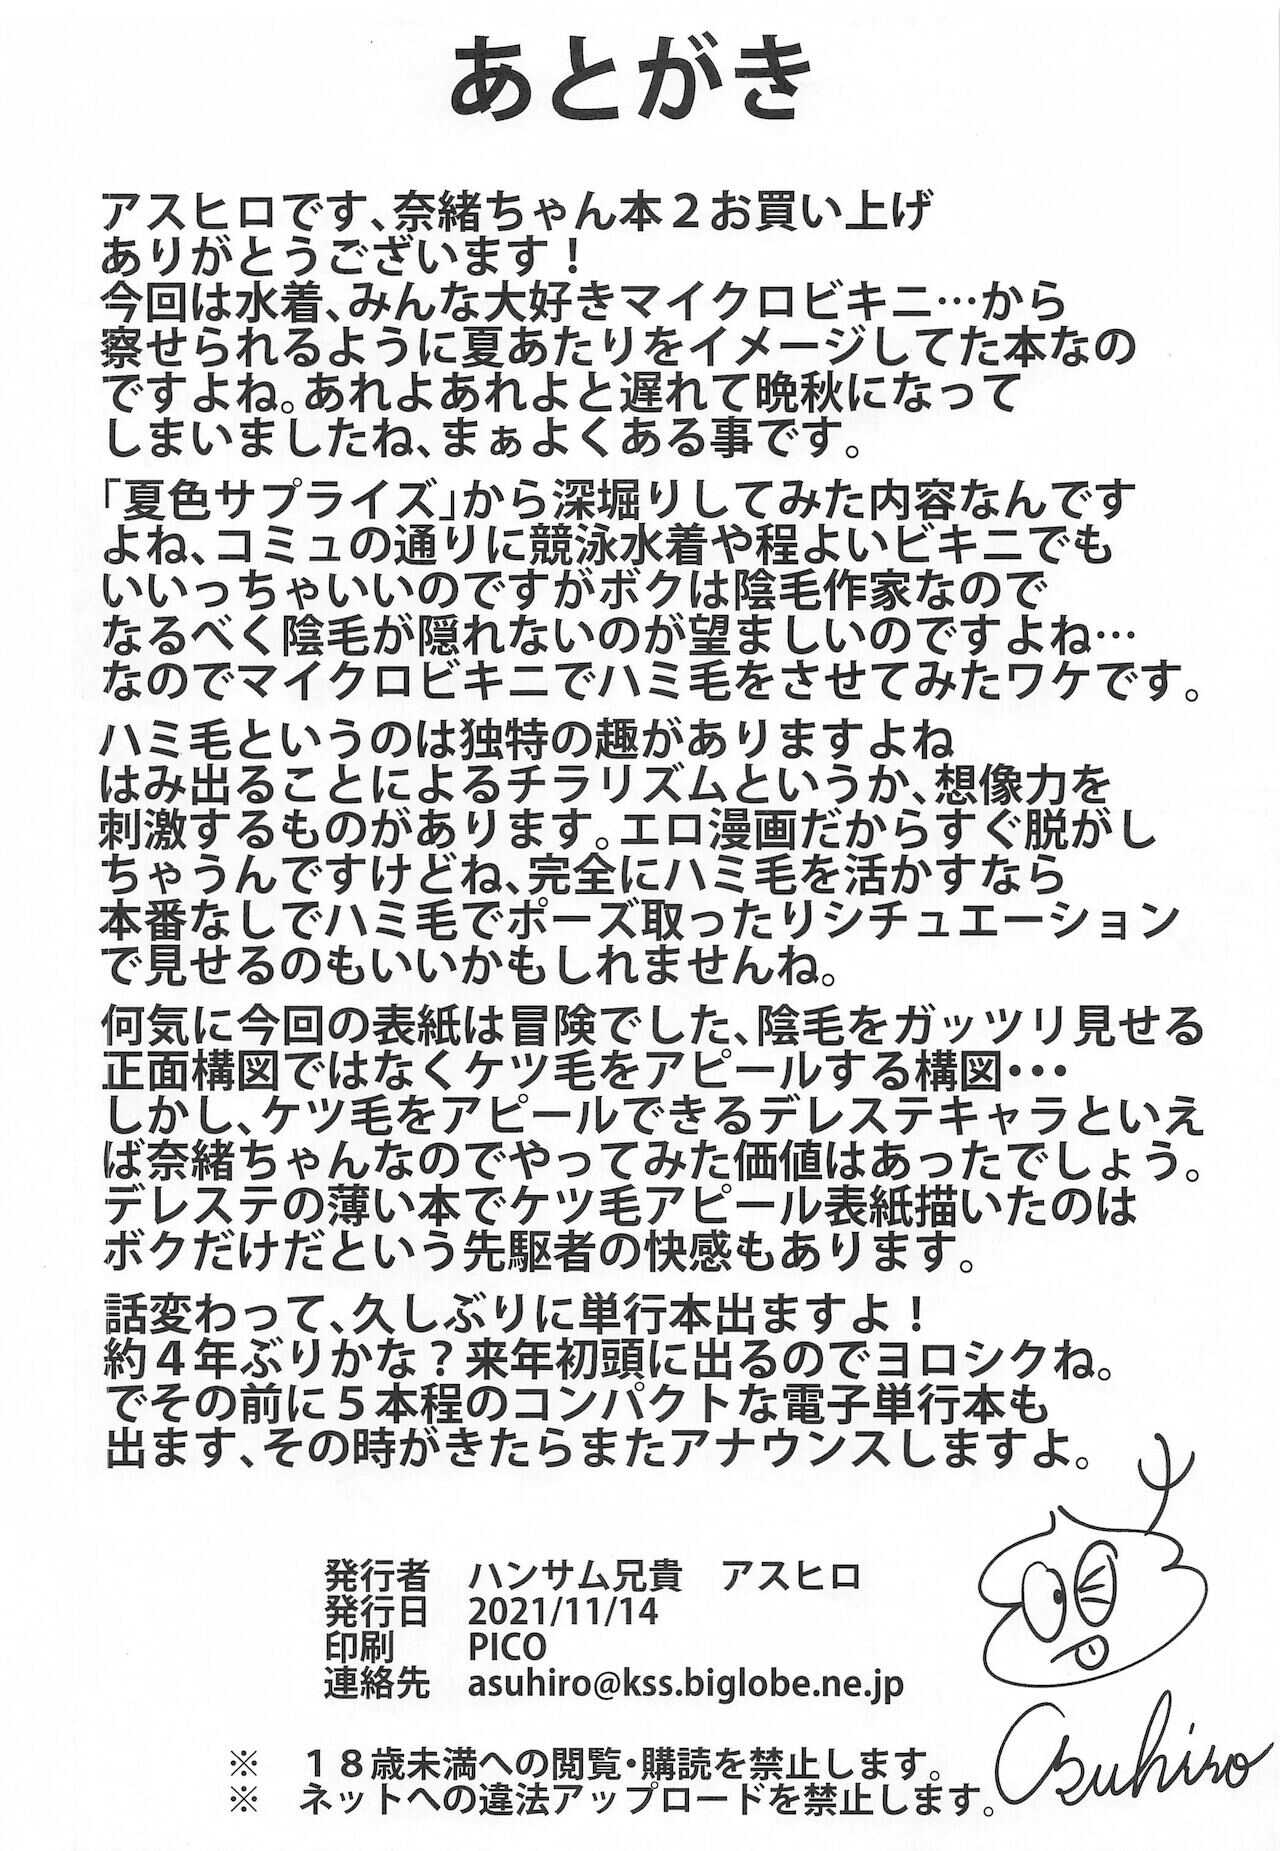 あとがき
アスヒロです、奈緒ちゃん本２お買い上げ
ありがとうございます！
今回は水着、みんな大好きマイクロビキニ…から
察せられるように夏あたりをイメージしてた本なの
ですよね。あれよあれよと遅れて晩秋になって
しまいましたね、まぁよくある事です。
「夏色サプライズ」から深堀りしてみた内容なんです
よね、コミュの通りに競泳水着や程よいビキニでも
いいっちゃいいのですがボクは陰毛作家なので
なるべく陰毛が隠れないのが望ましいのですよね…
なのでマイクロビキニでハミ毛をさせてみたワケです。
ハミ毛というのは独特の趣がありますよね
はみ出ることによるチラリズムというか、想像力を
刺激するものがあります。エロ漫画だからすぐ脱がし
ちゃうんですけどね、完全にハミ毛を活かすなら
本番なしでハミ毛でポーズ取ったりシチュエーション
で見せるのもいいかもしれませんね。
何気に今回の表紙は冒険でした、陰毛をガッツリ見せる
正面構図ではなくケツ毛をアピールする構図・・・
しかし、ケツ毛をアピールできるデレステキャラといえ
ば奈緒ちゃんなのでやってみた価値はあったでしょう。
デレステの薄い本でケツ毛アピール表紙描いたのは
ボクだけだという先駆者の快感もあります。
話変わって、久しぶりに単行本出ますよ！
約４年ぶりかな？来年初頭に出るのでヨロシクね。
でその前に５本程のコンパクトな電子単行本も
出ます、その時がきたらまたアナウンスしますよ。
発行者　ハンサム兄貴　アスヒロ
発行日　2021/11/14
印刷　PICO
連絡先　asuhiro@kss.biglobe.ne.jp
Asuhiro
※　１８歳未満への閲覧・購読を禁止します。
※　ネットへの違法アップロードを禁止します。